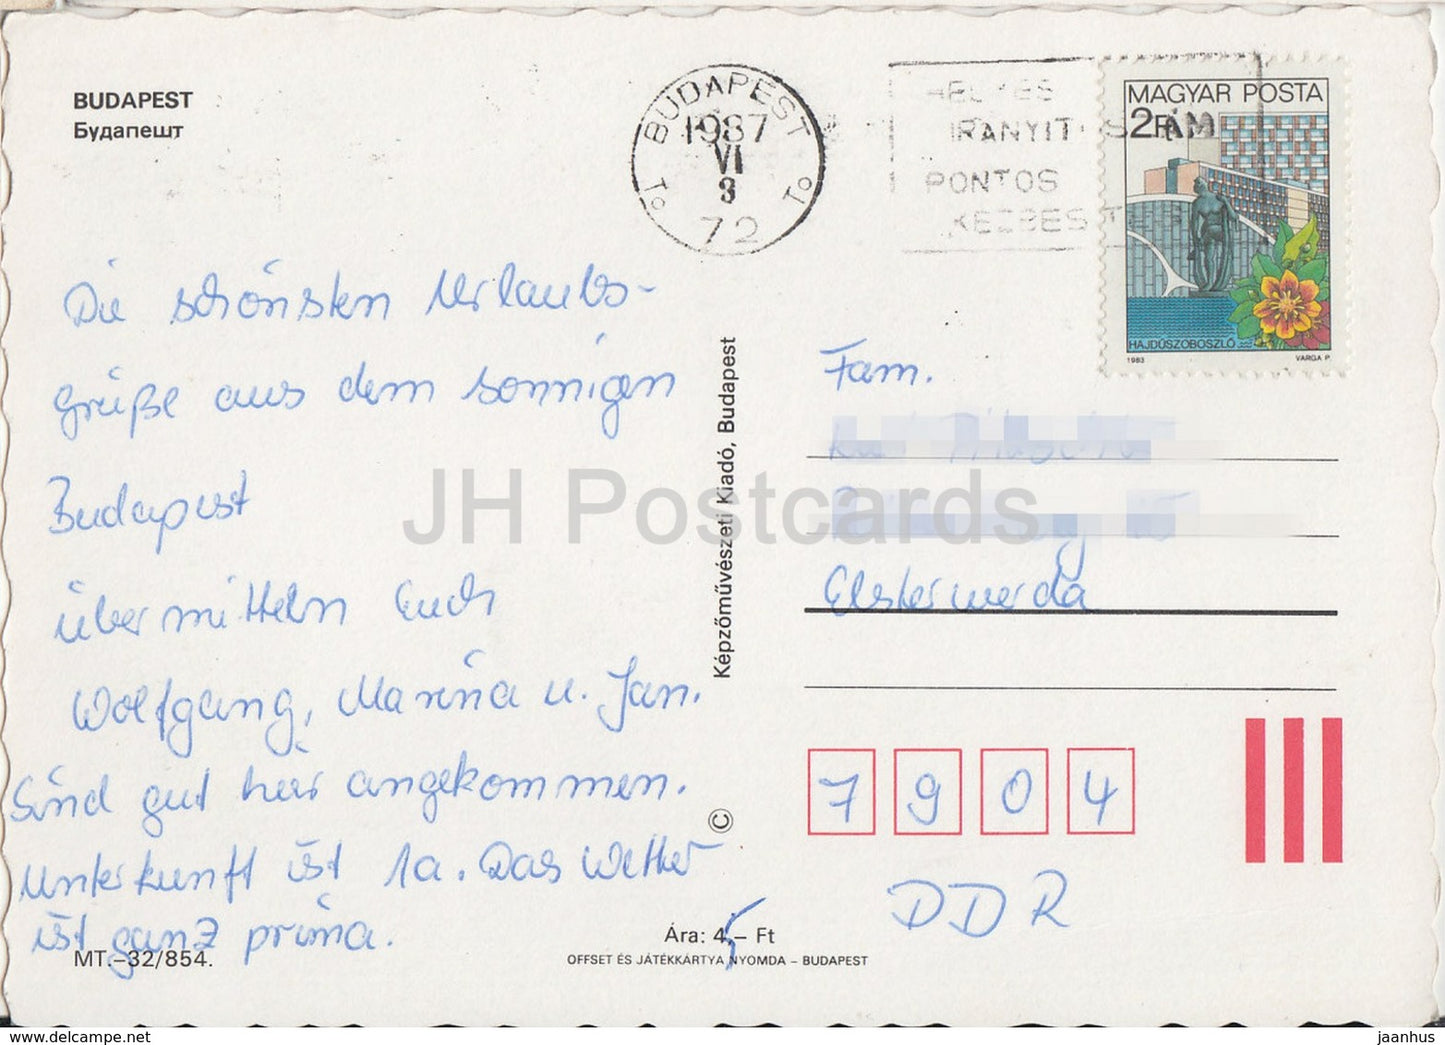 BUDAPEST
Будапешт
BUDAPEST
1987
VI
72
HELYES
IRÁNYÍTÓSZÁM
PONTOS
KÉZBESÍTÉS
MAGYAR POSTA
2Ft
HAJDÚSZOBOSZLÓ
1983 VARGA P.
Die schönsten Urlaubs-
grüße aus dem sonnigen
Budapest
übermitteln Euch
Wolfgang, Marina u. Jan.
Sind gut hier angekommen.
Unterkunft ist 1a. Das Wetter
ist ganz prima.
MT.–32/854.
Képzőművészeti Kiadó, Budapest
©
Ára: 4,– Ft
5
OFFSET ÉS JÁTÉKKÁRTYA NYOMDA – BUDAPEST
Fam.
Elsterwerda
7904
DDR
JH Postcards
www.delcampe.net
jaanhus